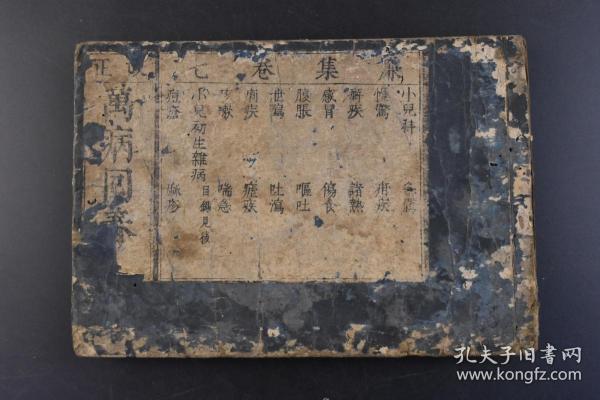 正
萬病回春
集卷七
小兒科
驚
癖疾 諸熱
感冒 傷食
腹脹 嘔吐
泄瀉 吐瀉
痢疾 瘧疾
咳嗽 喘急
小兒初生雜病 目錄見後
麻疹
孔夫子旧书网
www.kongfz.com